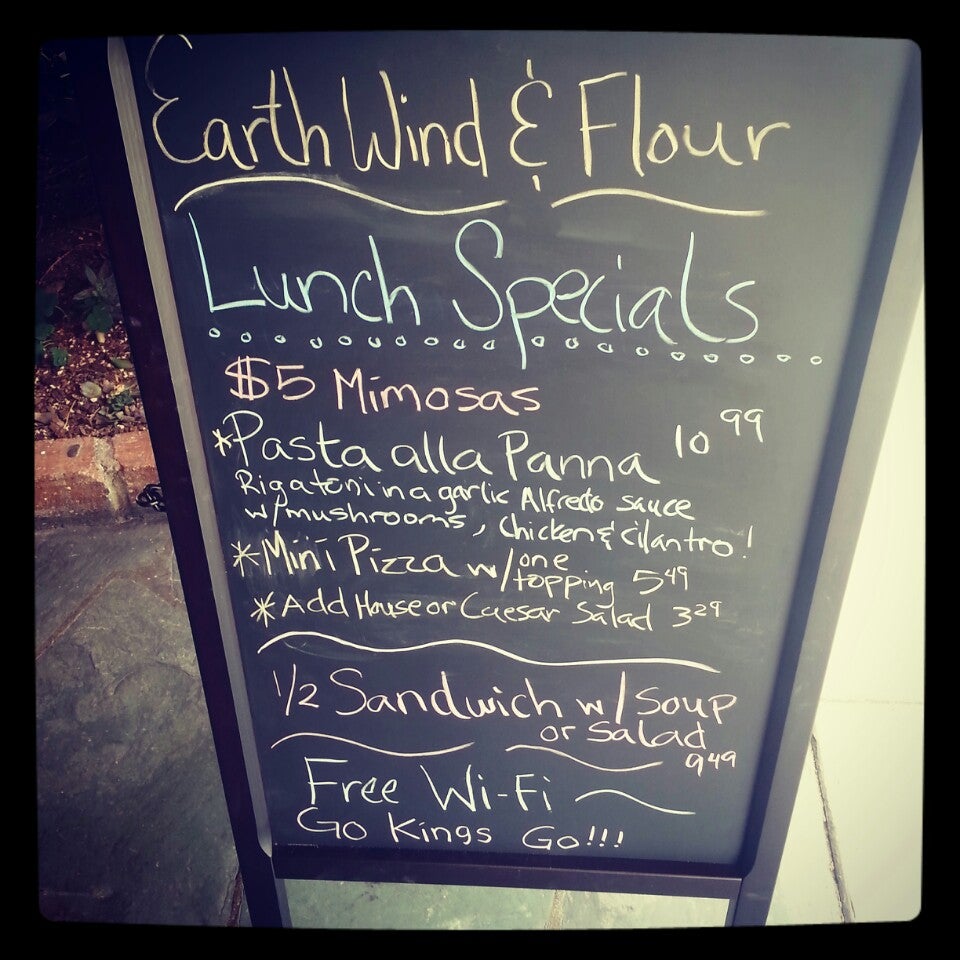 Earth Wind & Flour
Lunch Specials
$5 Mimosas
*Pasta alla Panna 10 99
Rigatoni in a garlic Alfredo sauce
w/mushrooms, Chicken & cilantro!
*Mini Pizza w/one topping 5 49
*Add House or Caesar Salad 3 29
1/2 Sandwich w/soup
or salad
9 49
Free Wi-Fi
Go Kings Go!!!